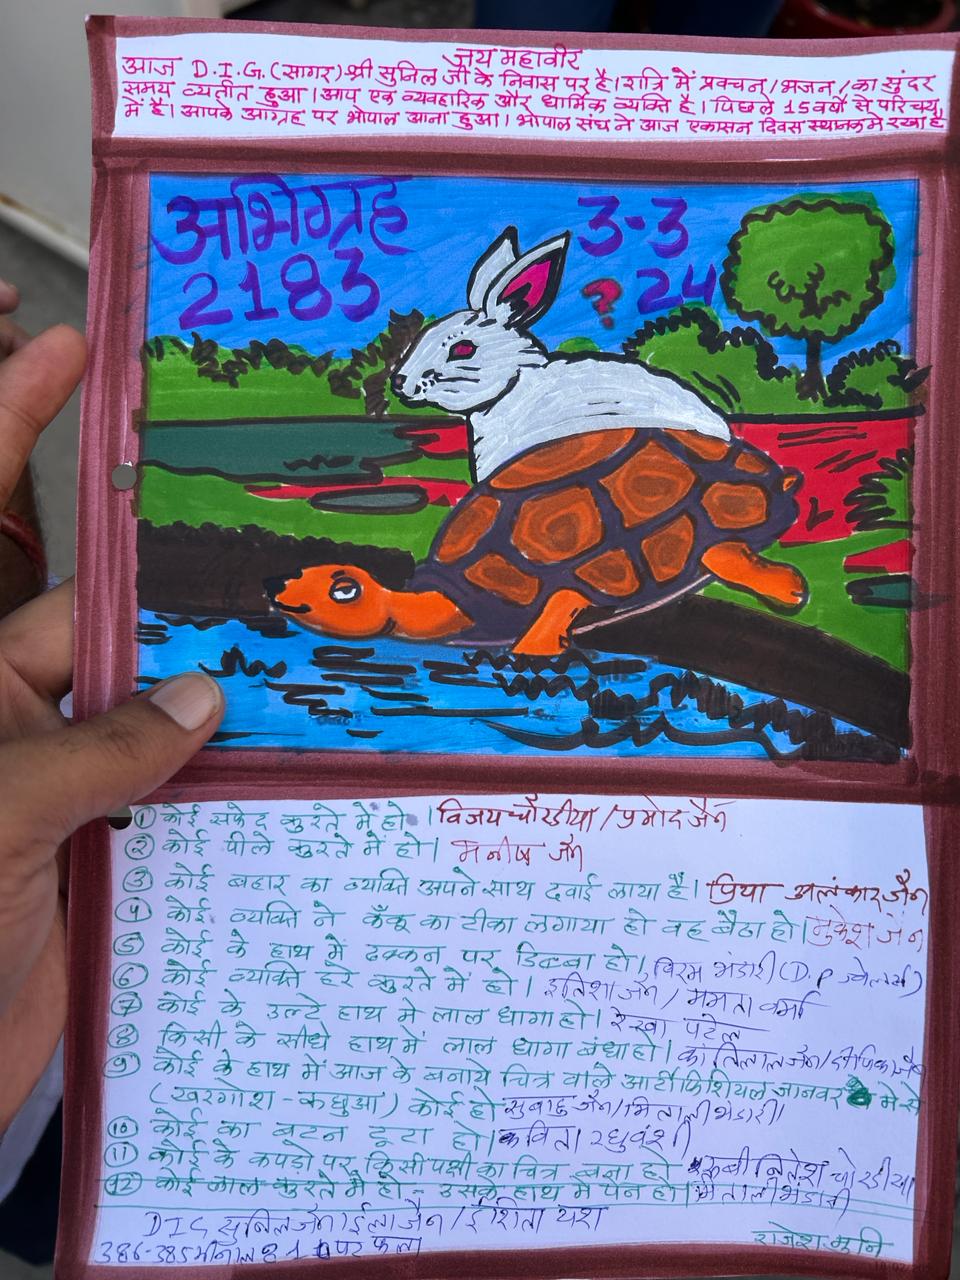 जय महावीर
आज D.I.G.(सागर) श्री सुनिल जी के निवास पर है। रात्रि में प्रवचन/भजन/का सुंदर
समय व्यतीत हुआ। आप एक व्यवहारिक और धार्मिक व्यक्ति है। पिछले 15 वर्षो से परिचय
में है। आपके आग्रह पर भोपाल आना हुआ। भोपाल संघ ने आज एकासन दिवस स्थानक मे रखा है
अभिग्रह 3-3
2183 ? 24
① कोई सफेद कुरते में हो। विजय चौरडीया/प्रमोद जैन
② कोई पीले कुरते में हो। मनीष जैन
③ कोई बहार का व्यक्ति अपने साथ दवाई लाया है। प्रिया अलंकार जैन
④ कोई व्यक्ति ने कँकू का टीका लगाया हो वह बैठा हो। मुकेश जैन
⑤ कोई के हाथ में ढक्कन पर डिब्बा हो। विरम भंडारी (D.P ज्वेलर्स)
⑥ कोई व्यक्ति हरे कुरते में हो। इतिशा जैन/ममता वर्मा
⑦ कोई के उल्टे हाथ मे लाल धागा हो। रेखा पटेल
⑧ किसी के सीधे हाथ में लाल धागा बंधा हो। कांतिलाल जैन/दीपिका जैन
⑨ कोई के हाथ में आज के बनाये चित्र वाले आर्टीफिशियल जानवर मे से
(खरगोश-कछुआ) कोई हो सुबाहु जैन/मिताली भंडारी
⑩ कोई का बटन टूटा हो। कविता रघुवंशी
⑪ कोई के कपड़ो पर किसी पक्षी का चित्र बना हो रूबी नितेश चोरडीया
⑫ कोई लाल कुरते में हो - उसके हाथ में पेन हो। मिताली भंडारी
DIG सुनिल जैन/ईला जैन/ईशिता यश
386-385 मीनाल 81 पर फला
राजेश मुनि